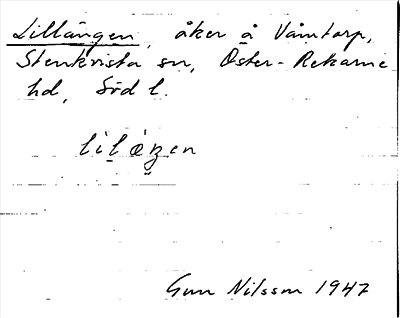 Lillängen, åker å Våmtorp,
Stenkvista sn, Öster-Rekarne
hd, Söd l.
Gun Nilsson 1947